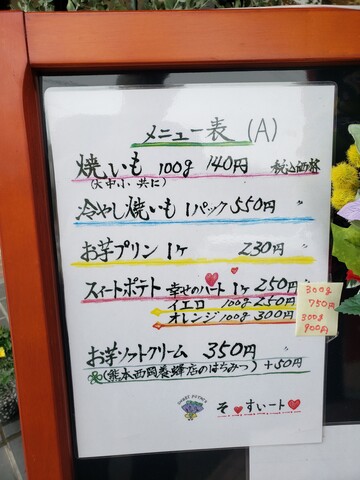 メニュー表 (A)
焼いも 100g 140円 税込価格
(大中小 共に)
冷やし焼いも 1パック 550円
お芋プリン 1ケ 230円
スイートポテト 幸せのハート 1ケ 250円
イエロー 100g 250円
オレンジ 100g 300円
300g
750円
300g
900円
お芋ソフトクリーム 350円
(熊本西岡養蜂店のはちみつ) +50円
そ♥すいート♥